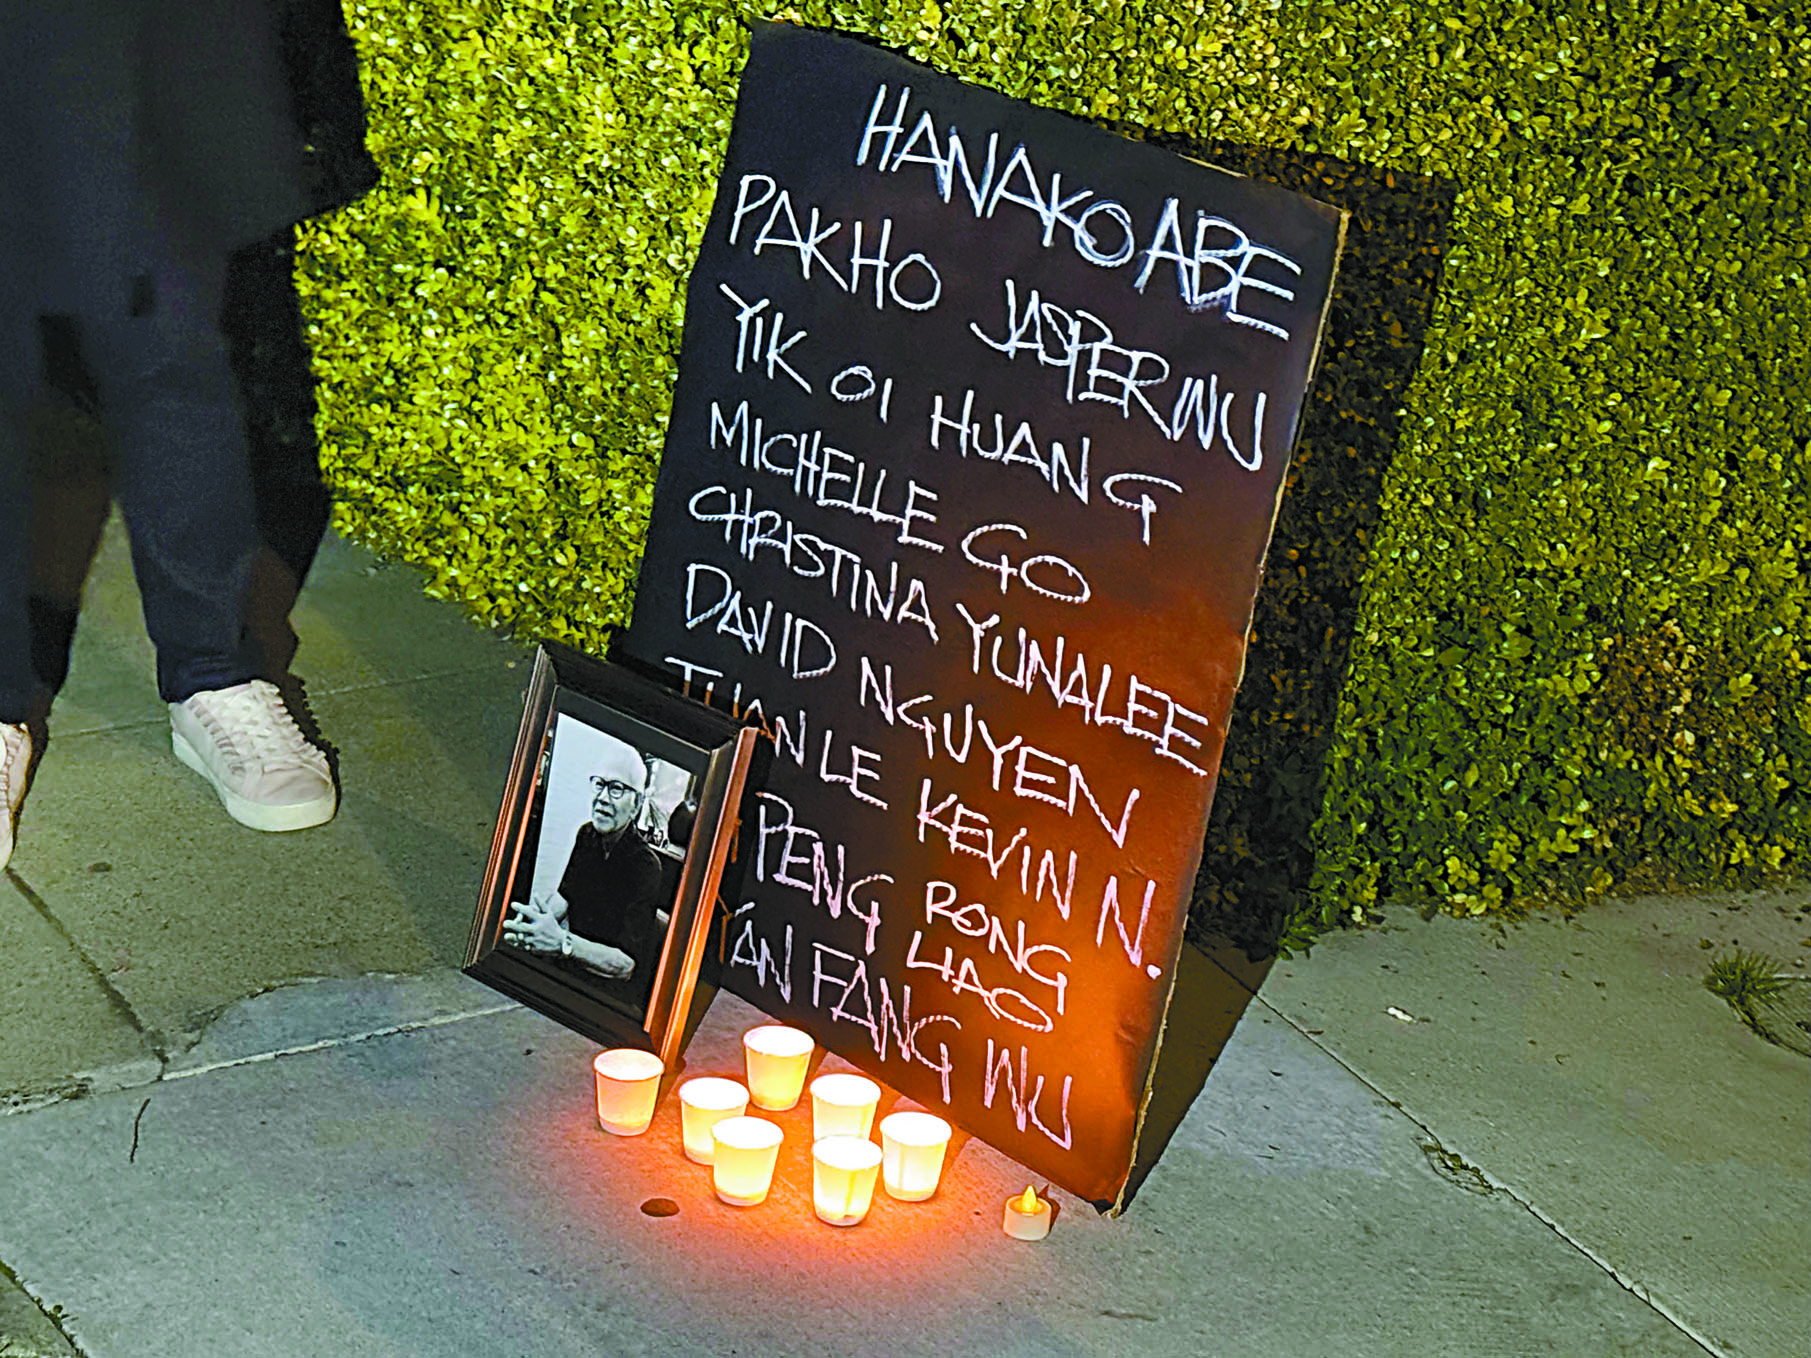 HANAKO ABE
PAK HO
JASPER WU
YIK OI HUANG
MICHELLE GO
CHRISTINA YUNALEE
DAVID NGUYEN
TUAN LE KEVIN N.
PENG RONG
LIAO
YAN FANG WU